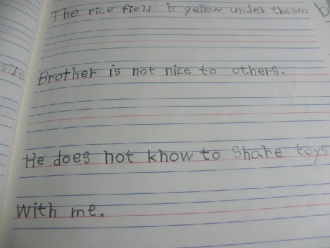 The rice field is yellow under the sun
Brother is not nice to others.
He does not know to share toys
with me.